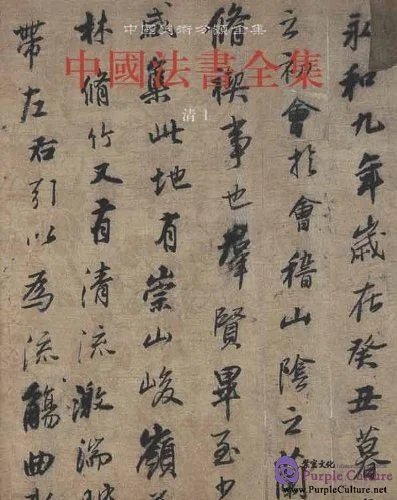 中國美術分類全集
中國法書全集
清 1
永和九年歲在癸丑暮
立初會於會稽山陰之
脩禊事也羣賢畢至少
咸集此地有崇山峻嶺
林脩竹又有清流激湍
帶左右引以為流觴曲
紫宸文化
Purple Culture
www.PurpleCulture.net